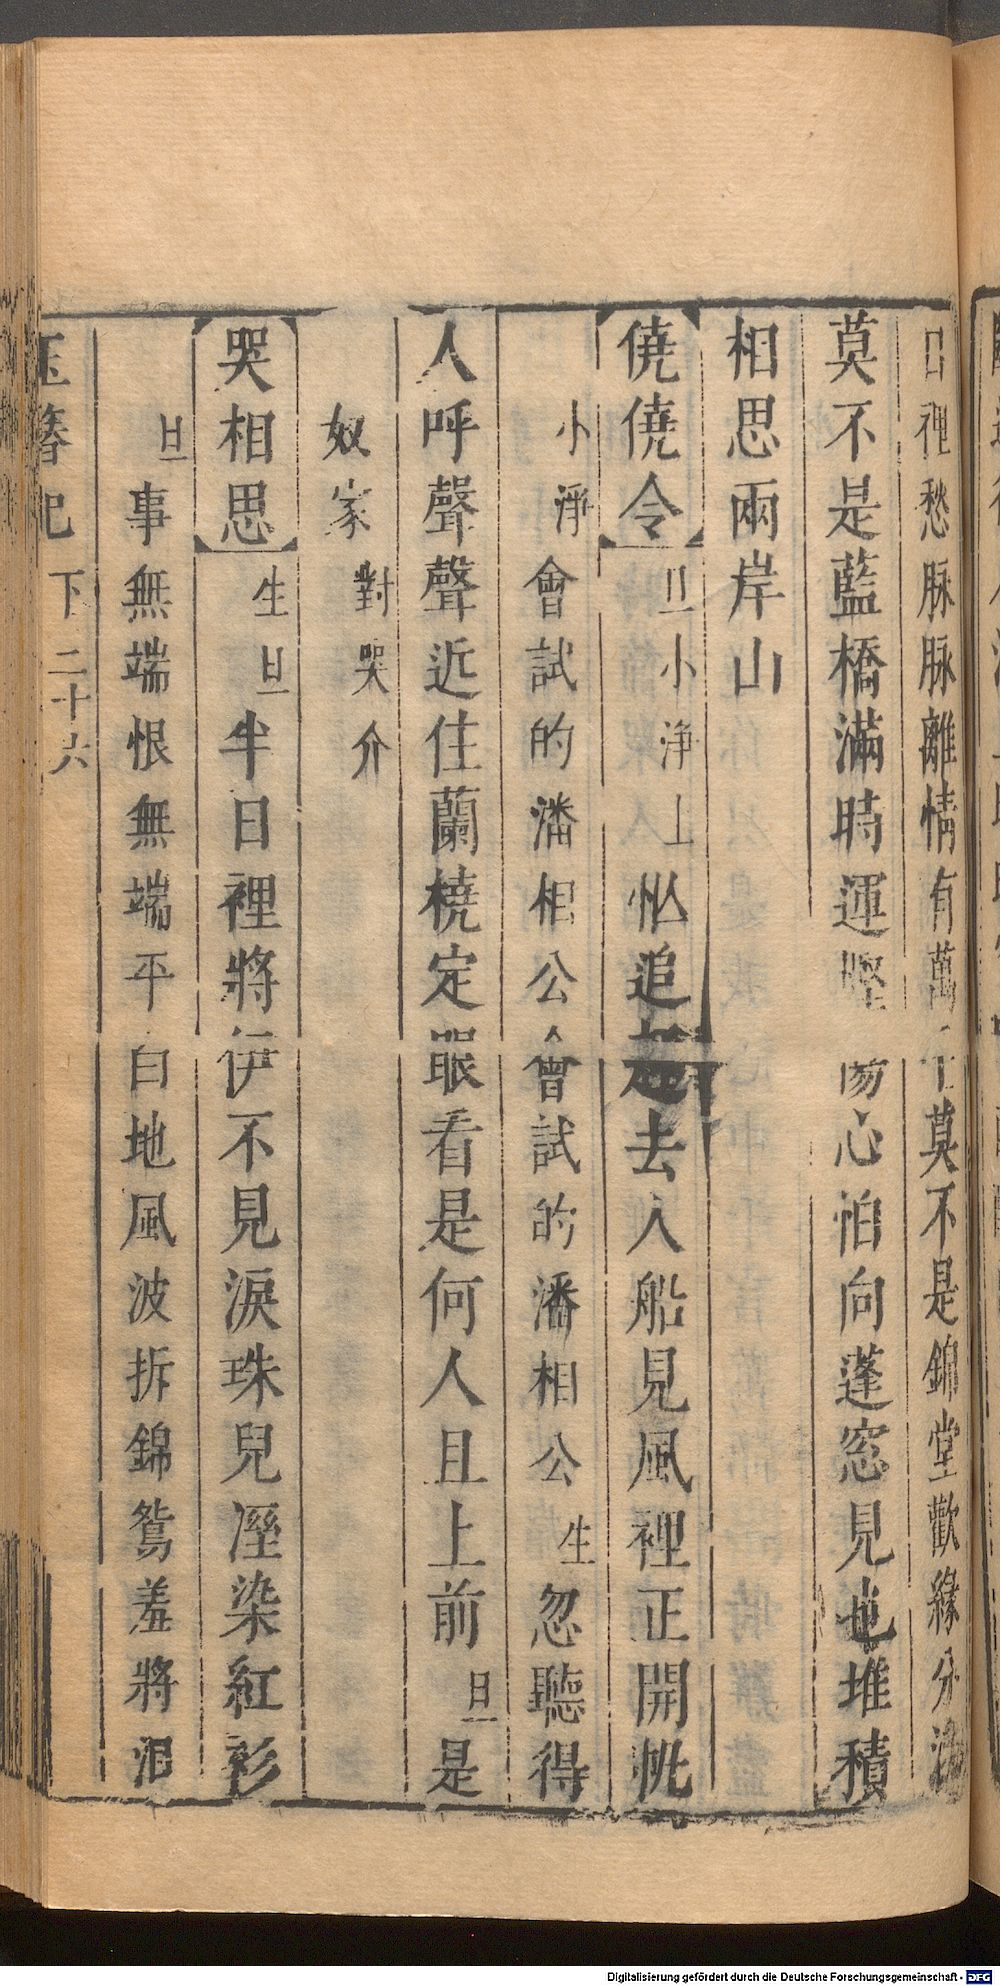 口裡愁脉脉離情有萬千莫不是錦堂歡緣分淺
莫不是藍橋滿時運慳傷心怕向蓬窓見也堆積
相思兩岸山
僥僥令 旦小淨上 忙追趕去人船見風裡正開帆
小淨會試的潘相公會試的潘相公生忽聽得
人呼聲聲近住蘭橈定眼看是何人且上前旦是
奴家對哭介
哭相思 生旦 半日裡將伊不見淚珠兒溼染紅彩
旦事無端恨無端平白地風波拆錦鴛羞將泪
玉簪記 下 二十六
Digitalisierung gefördert durch die Deutsche Forschungsgemeinschaft - DFG